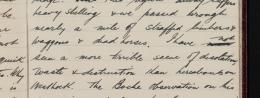 heavy shelling & we passed through
nearly a mile of strafed limbers &
waggons & dead horses. I have not
seen a more terrible scene of desolation,
waste & destruction than hereabouts on
The Boche observation on his